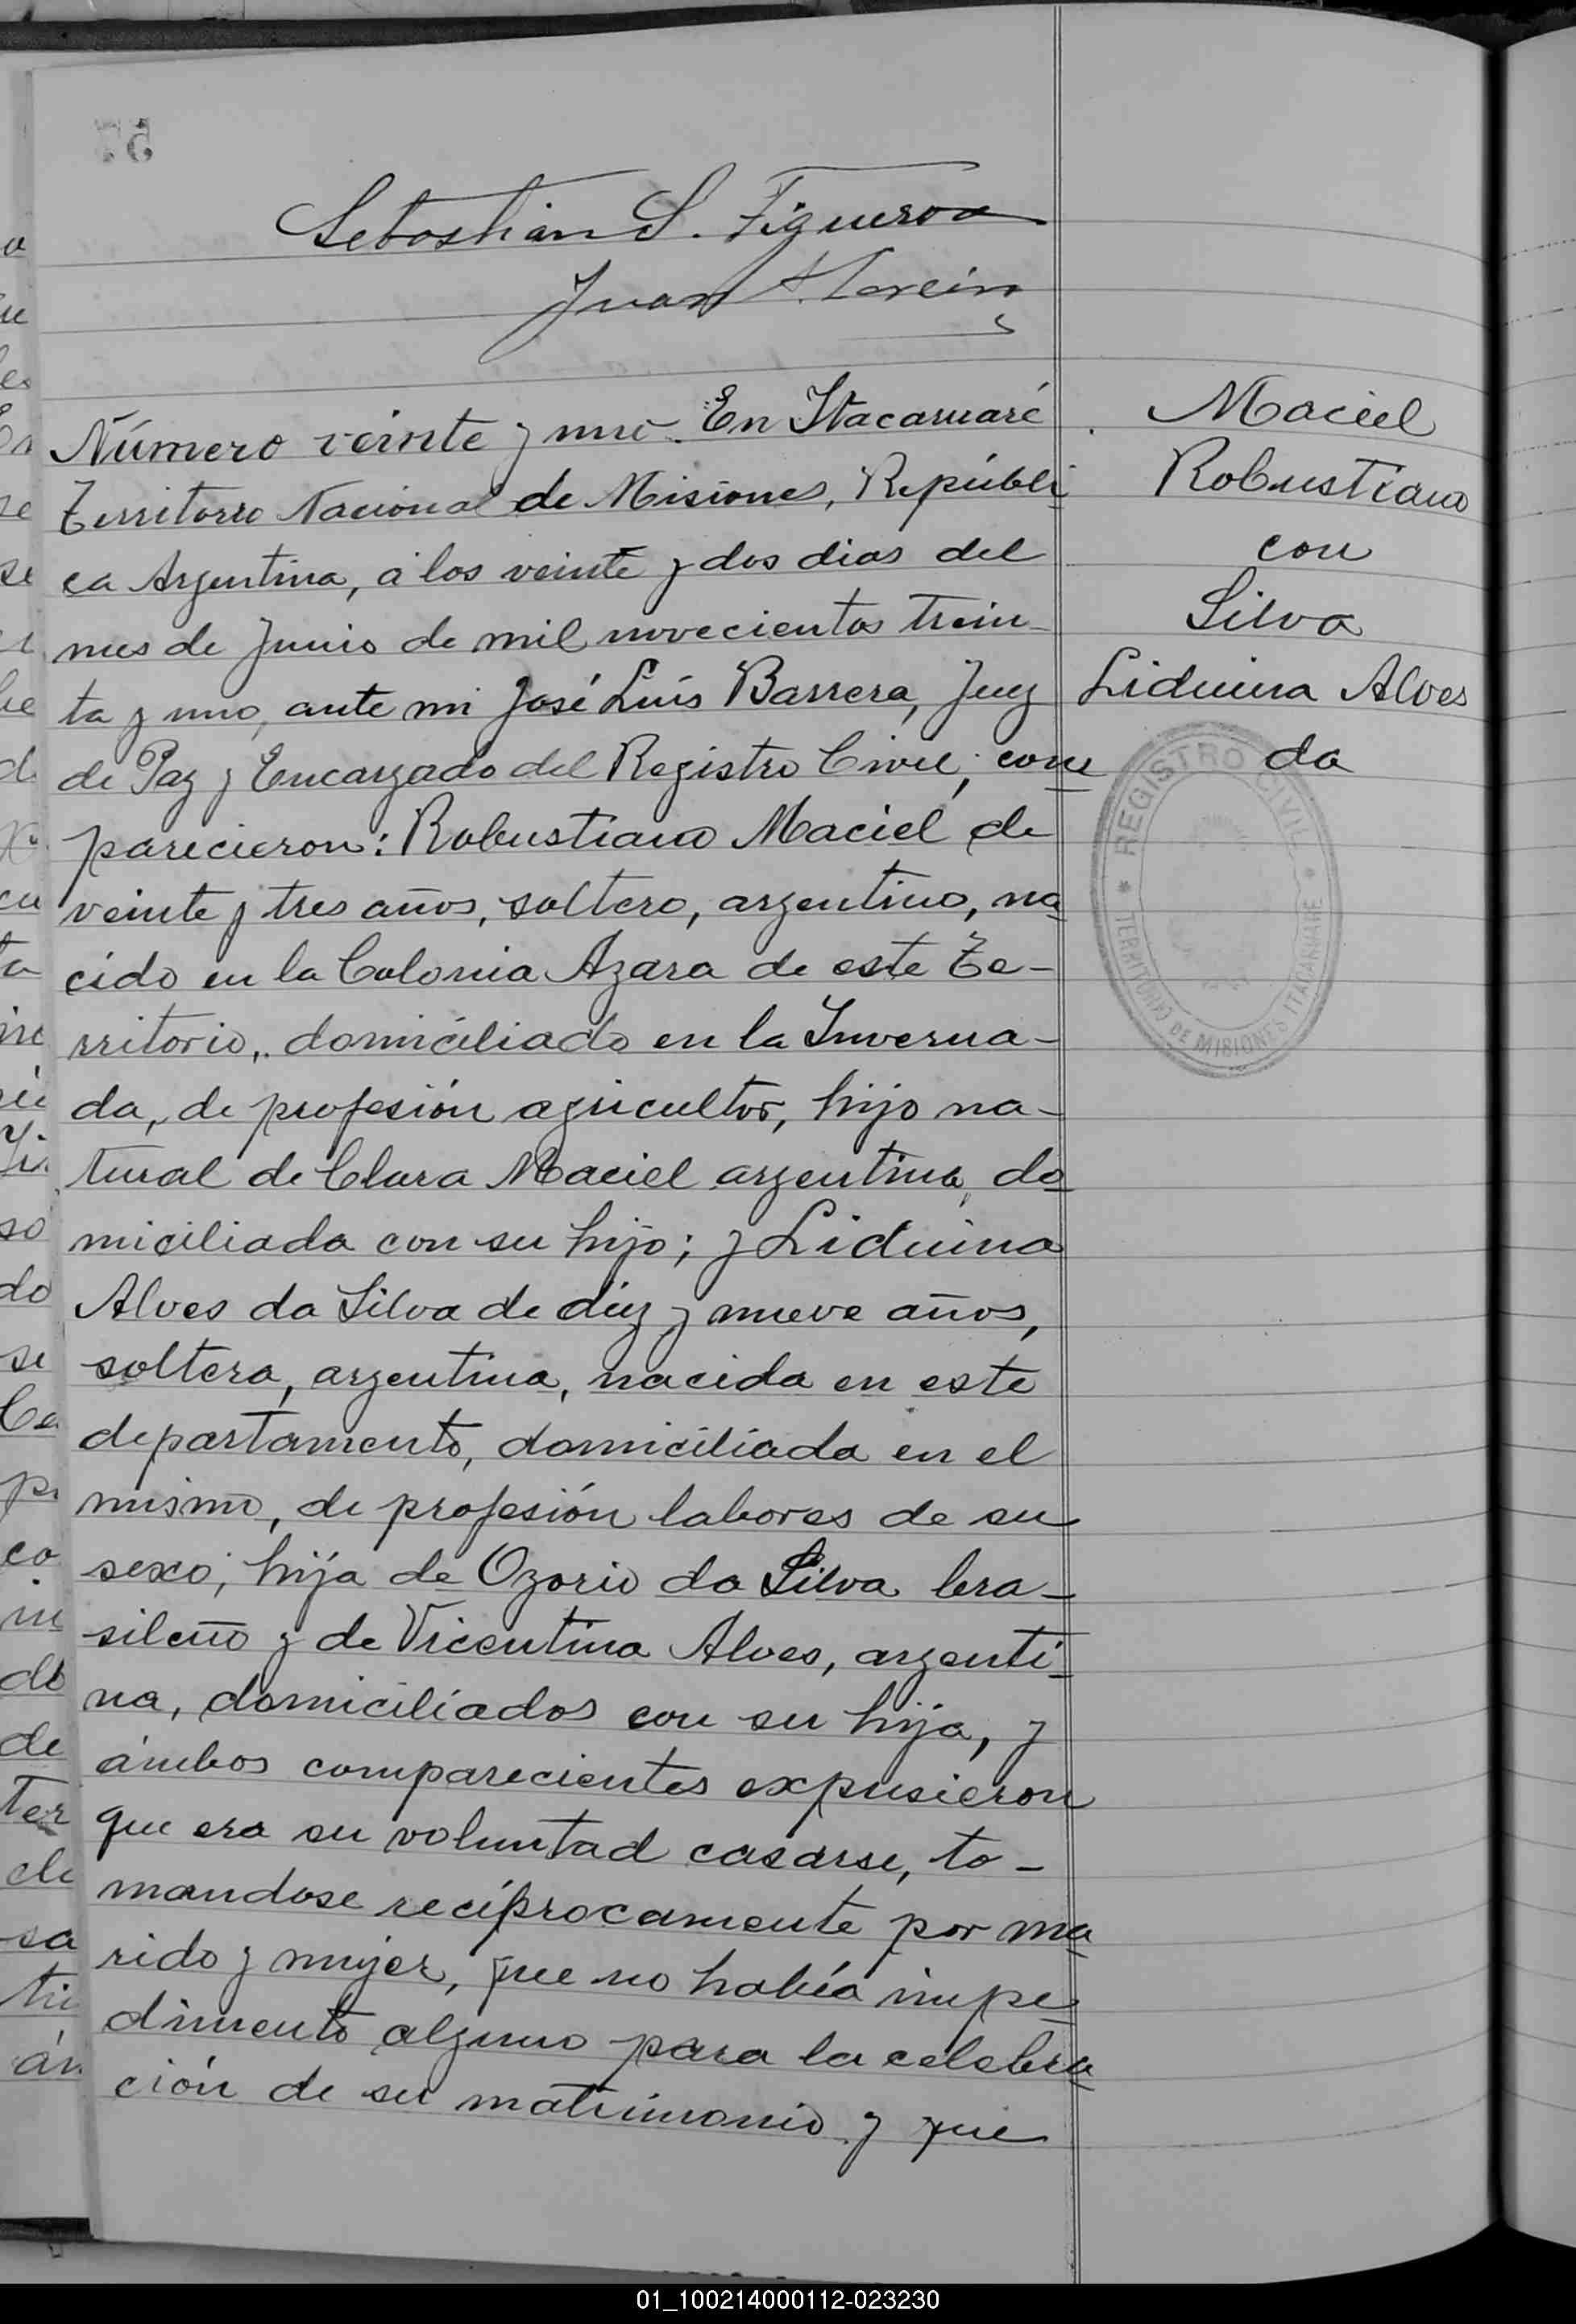 57
Sebastian S. Figueroa
Juan
Número veinte y uno. En Itacaruaré
Territorio Nacional de Misiones, Repúbli
ca Argentina, á los veinte y dos dias del
mes de Junio de mil novecientos trein-
ta y uno, ante mi José Luis Barrera, Juez
de Paz y Encargado del Registro Civil, com
parecieron: Robustiano Maciel de
veinte y tres años, soltero, argentino, na
cido en la Colonia Azara de este Te-
rritorio, domiciliado en la Inverna-
da, de profesión agricultor, hijo na-
tural de Clara Maciel argentina, do
miciliada con su hijo; y Liduina
Alves da Silva de diez y nueve años,
soltera, argentina, nacida en este
departamento, domiciliada en el
mismo, de profesión labores de su
sexo; hija de Ozorio da Silva bra-
sileño y de Vicentina Alves, argenti-
na, domiciliados con su hija, y
ámbos comparecientes expusieron
que era su voluntad casarse, to-
mandose recíprocamente por ma
rido y mujer, que no había impe
dimento alguno para la celebra
ción de su matrimonio y que
Maciel
Robustiano
con
Silva
Liduina Alves
da
REGISTRO CIVIL
TERRITORIO DE MISIONES ITACARUARE
01_100214000112-023230